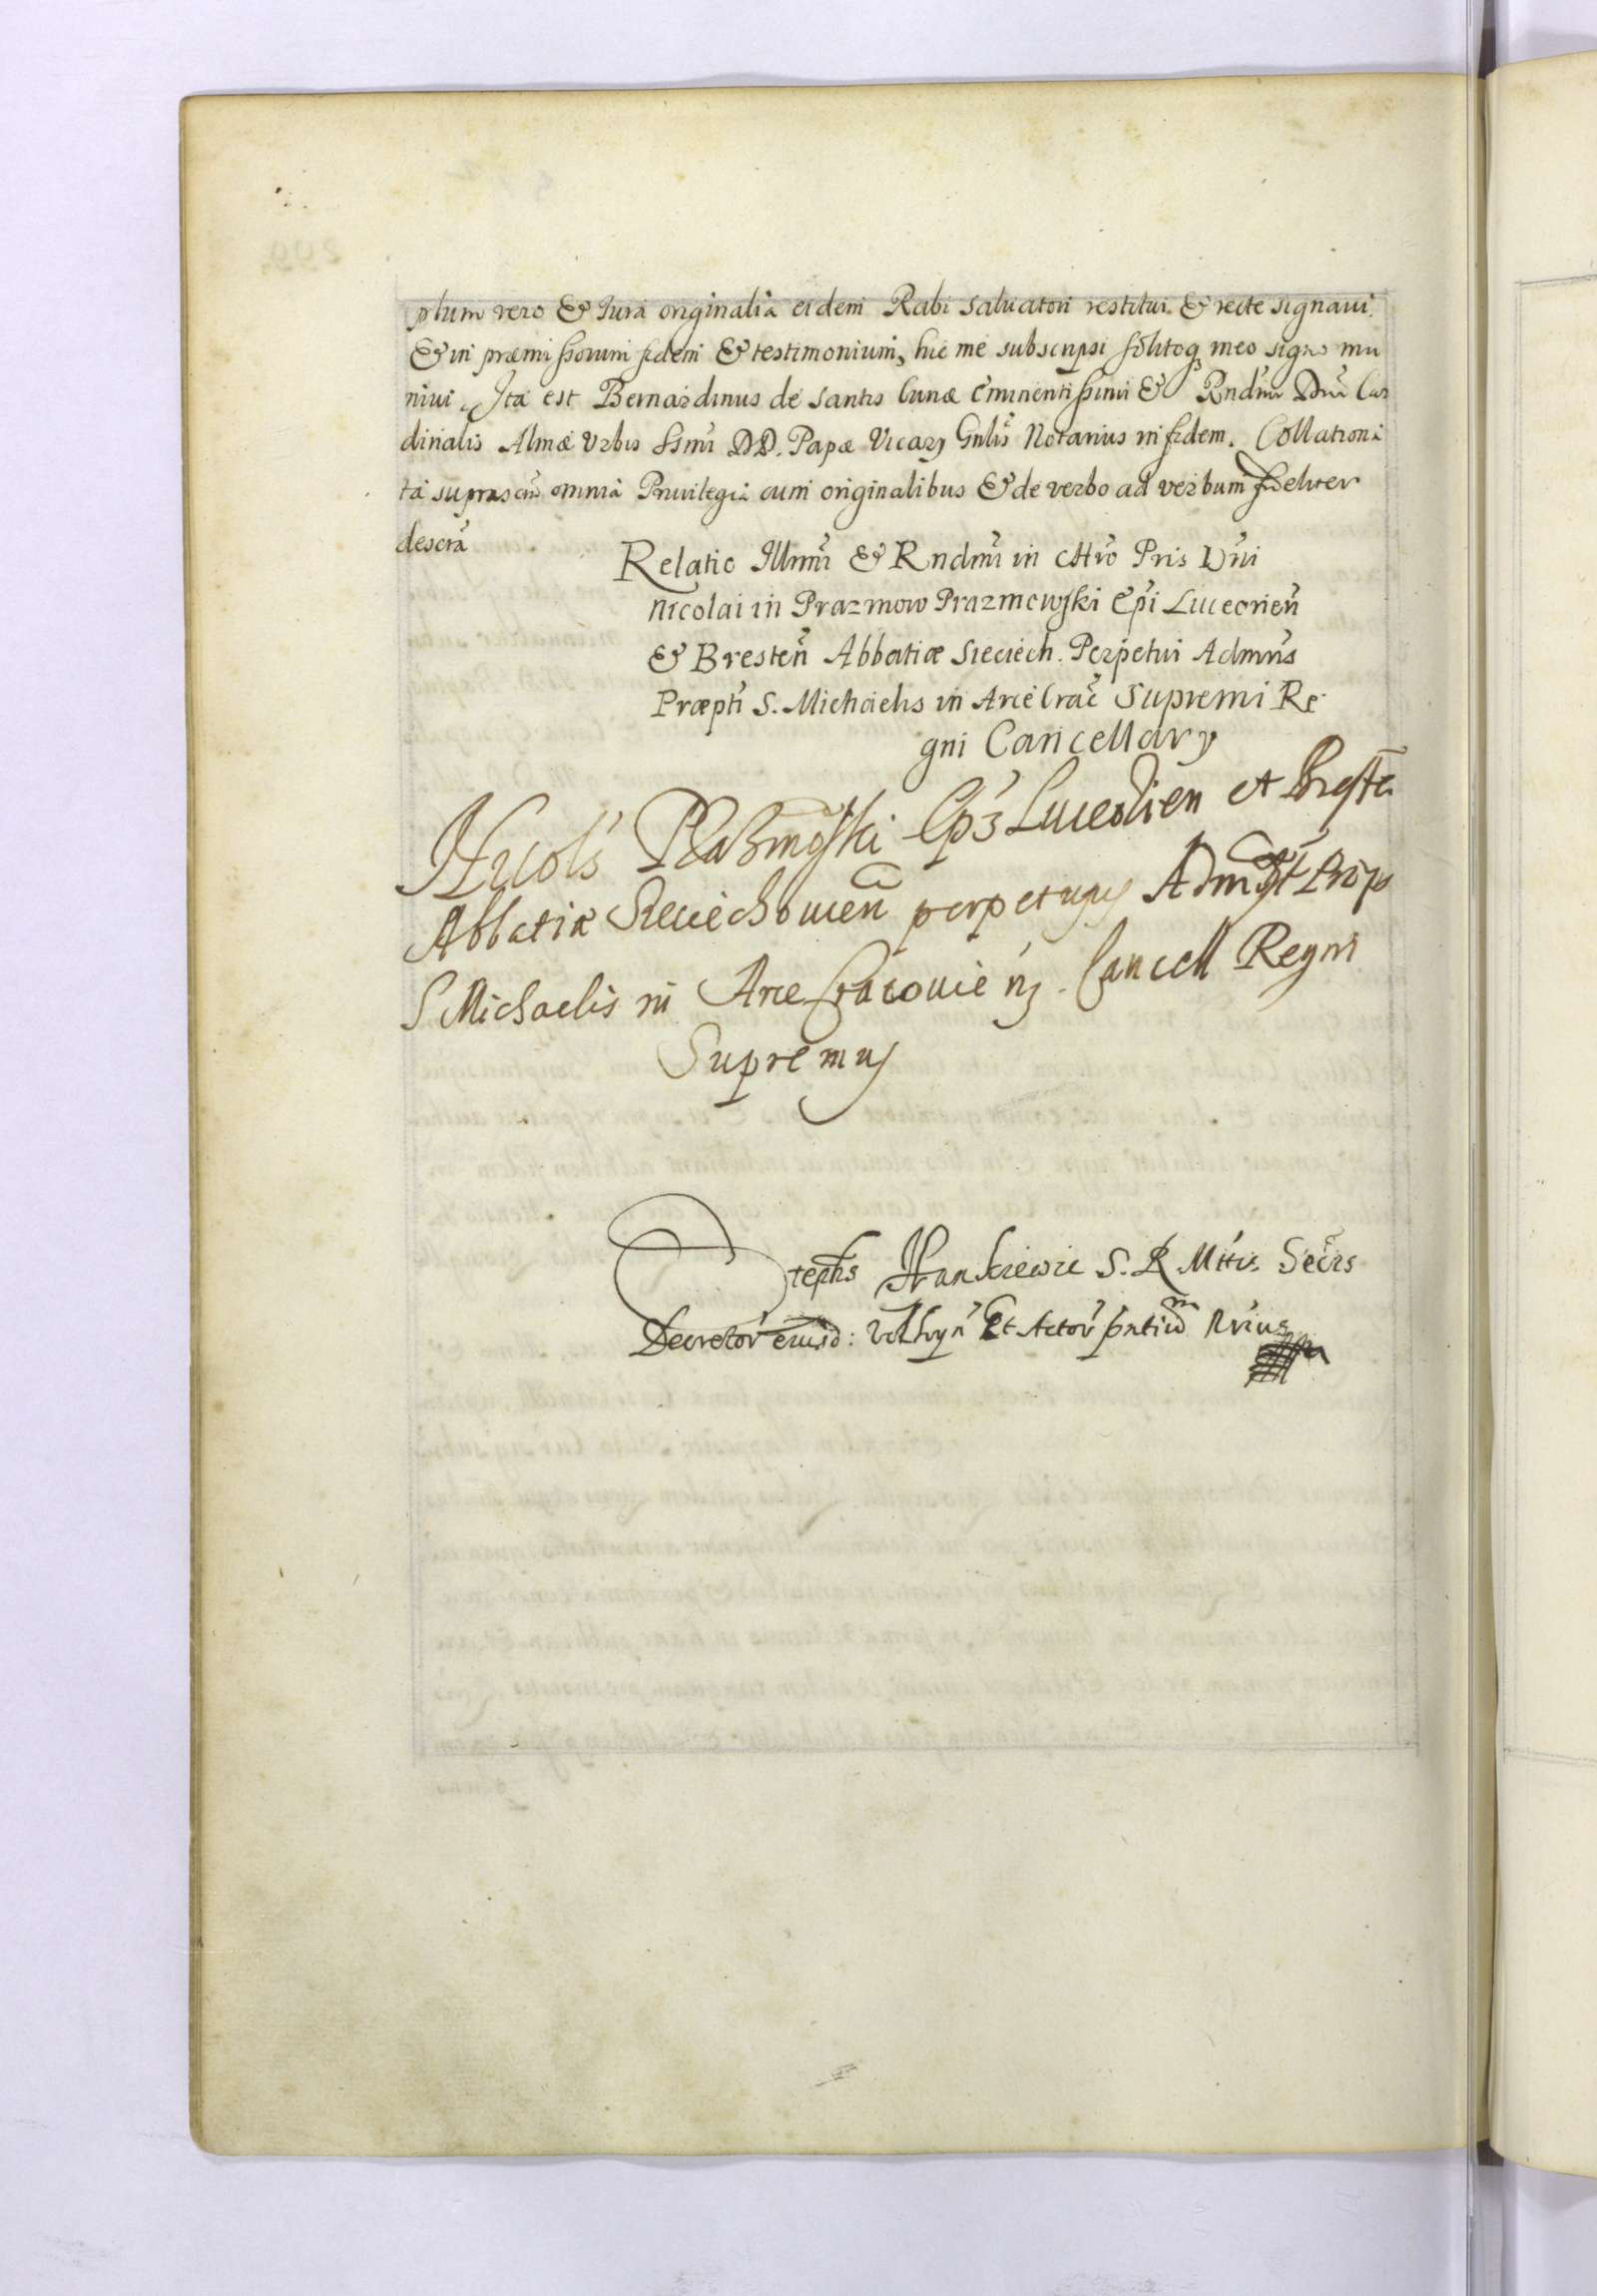 plum vero & Jura originalia eidem Rabi Salvatori restitui & recte signavi.
& in præmissorum fidem & testimonium, hic me subscripsi solitoq3 meo signo mu
nivi. Ita est Bernardinus de Santis Curiæ Eminentissimi & Rndmi Dni Car
dinalis Almæ Urbis Ssmi DD. Papæ Vicarij Gnlis Notarius in fidem. Collationa
ta suprascra omnia Privilegia cum originalibus & de verbo ad verbum fideliter
descra
Relatio Illmi & Rndmi in Chro Pris Dni
Nicolai in Prazmow Prazmowski Epi Luceorien
& Bresten Abbatiæ Sieciech. Perpetui Admris
Præpti S. Michaelis in Arce Crac Supremi Re
gni Cancellarij
Nicols Prazmoski Eps Luceorien et Breste
Abbatiæ Sieciechovien perpetuus Admr et Prõp
S Michaelis in Arce Cracovien. Cancell Regni
Supremus
Stephs Hankiewic S. R. Mttis Secrs
Decretor eiusd: Volhyn Et Actor pntium Nrius